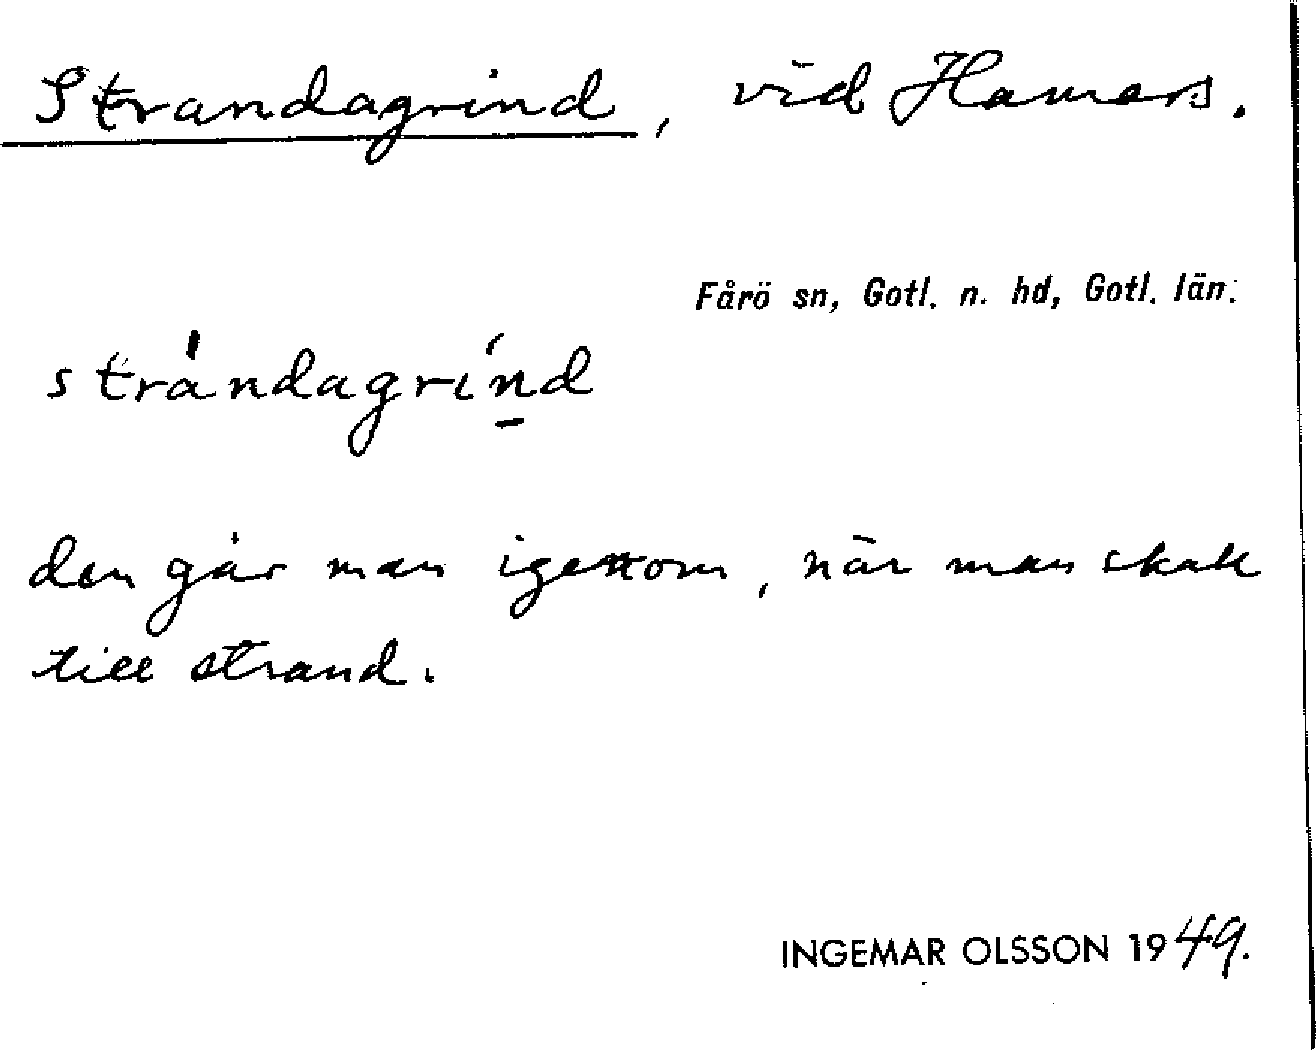 Strandagrind, vid Hamars.
Fårö sn, Gotl. n. hd, Gotl. län.
stràndagríṉd
den går man igenom, när man skall
till strand.
INGEMAR OLSSON 1949.